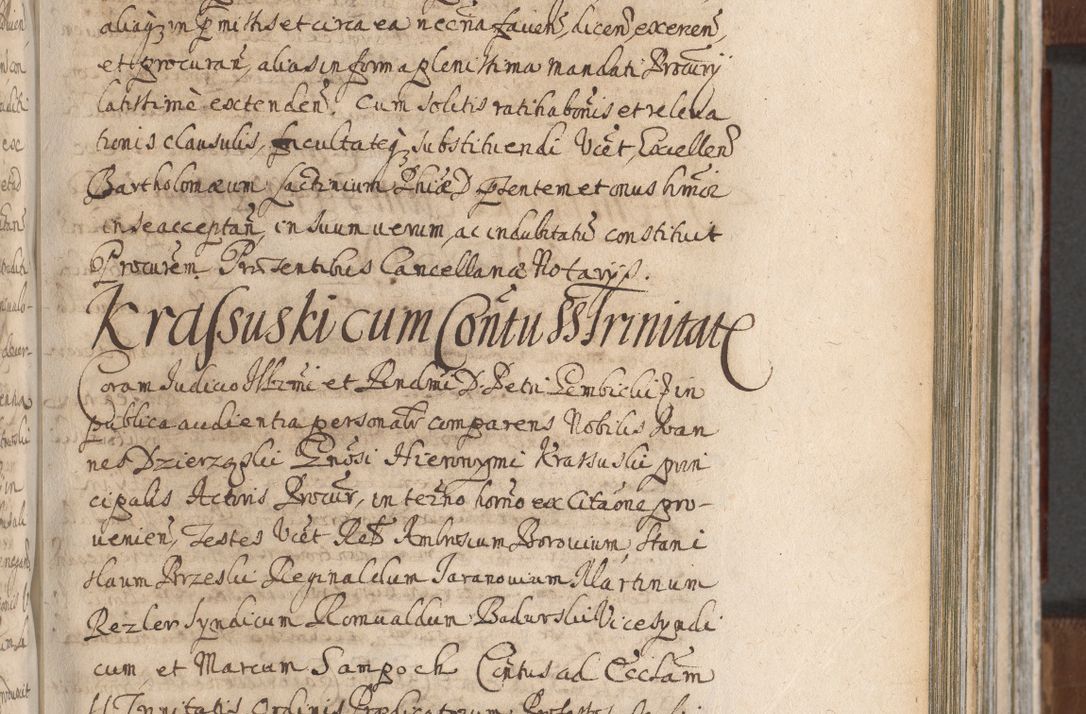 aliaqz in pmissis et circa ea necña facien̄, dicen̄, exercen̄,
et procuran̄, alias in forma plenissima mandati Procury
latissimè extenden̄. Cum solitis ratihabōnis et releva
tionis clausulis, facultateqz substituendi Vict, Excellen̄
Bartholomæum Phiæ D. pntem et onus hmōi
in se acceptan̄, in suum verum, ac indubitatū constituit
Procurem. Præsentibus Cancellariæ Notarijs.
Krassuski cum Contu SS Trinitate
Coram Judicio Illrmi et Rndmi D. Petri Gembicki in
publica audientia personalr comparens Nobilis Joan
nes Dzierzgski Gnōsi Hieronymi Krassuski prin
cipalis Actoris Procur, in termo horño ex Citaōne pro-
venien̄, Testes Vict Rel Ambrosium Borovium, Stani
slaum Brzeski Reginaldum Taranovium Martinum
Rezler Syndicum Romualdum Badurski Vicesyndi
cum, et Marcum Sampoch Contus ad Ecclam
SS Trinitatis Ordinis Prædicatorum